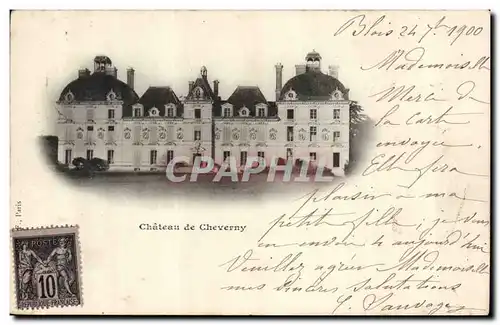 Blois 24 7bre 1900
Mademoiselle
Merci de
la carte
envoyée
Elle fera
plaisir a ma
petite fille, je vous
en envoie aujourd'hui
Veuillez agréer Mademoiselle
mes sincères salutations
Sauvage
CPAPHIL
Château de Cheverny
Paris
POSTES
10